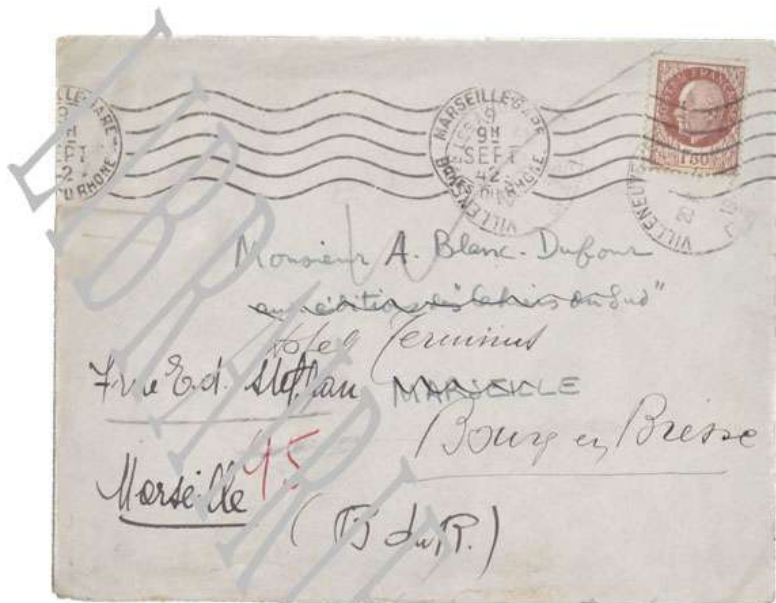 MARSEILLE-GARE
9H
SEPT
42
VILLENEUVE
Monsieur A. Blanc-Dufour
aux éditions des "Cahiers du Sud"
Hotel Terminus
7 rue Ed. Stephan MARSEILLE
Bourg en Bresse
Marseille 15
(B du R.)